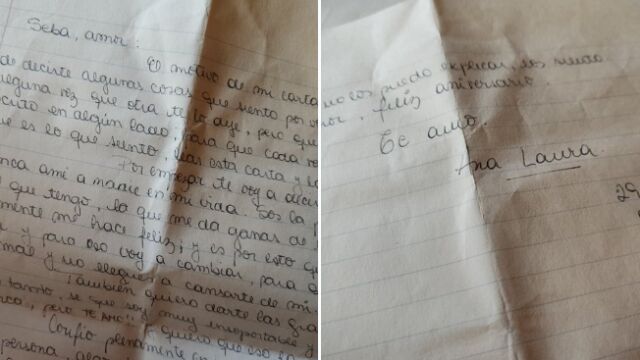 Seba, amor:
El motivo de mi carta
de decirte algunas cosas que siento por
alguna vez que otra te lo dije, pero que
escrito en algún lado, para que cada
que es lo que siento, leas esta carta y
Por empezar te voy a decir
nca amé a nadie en mi vida. Sos la
que tengo, la que me da ganas de
mente me hace feliz; y es por esto
y para eso voy a cambiar, para
más y no llegues a cansarte de mi.
También quiero darte las
tanto, se que soy muy insoportable y
pero TE AMO!
quiero que eso
Confío plenamente en
persona,
no los puedo explicar, los siento
feliz aniversario.
Te amo
Ana Laura.
29